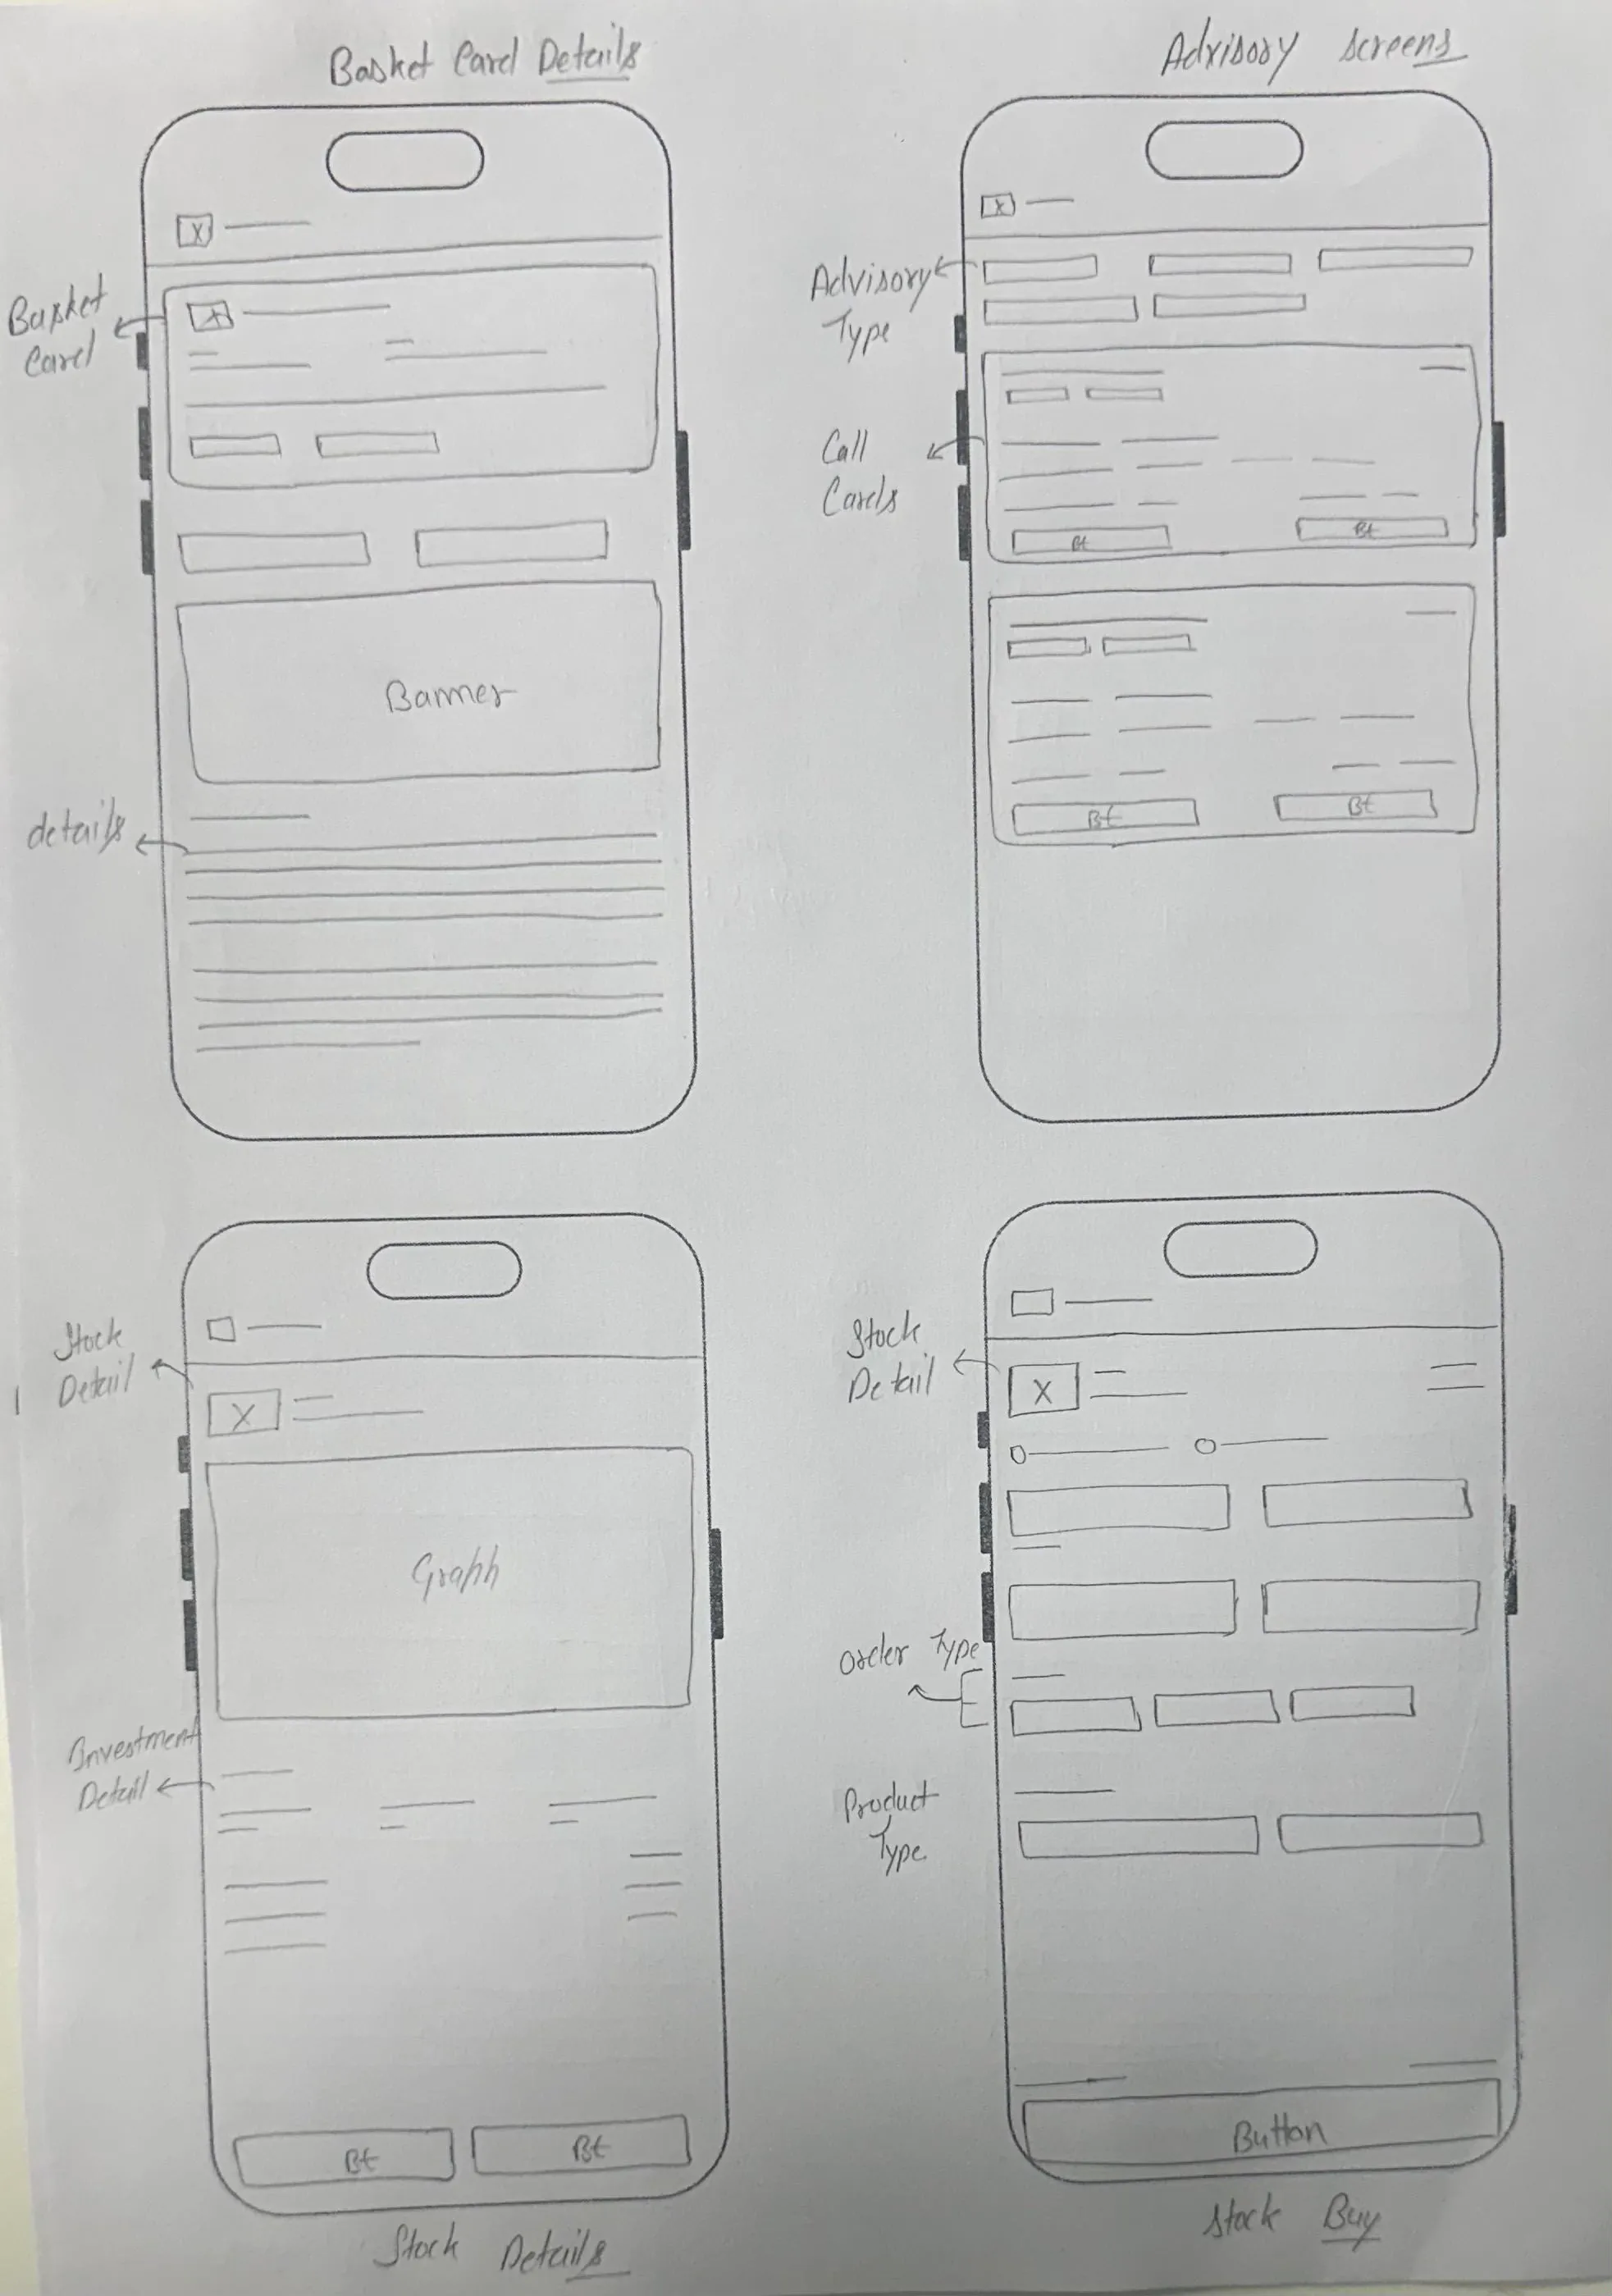 Basket Card Details
X
Basket
Card
X
Banner
details
Advisory screens
X
Advisory
Type
Call
Cards
Bt
Bt
Bt
Bt
Stock
Detail
X
Graph
Investment
Detail
Bt
Bt
Stock Details
Stock
Detail
X
Order Type
Product
Type
Button
Stock Buy